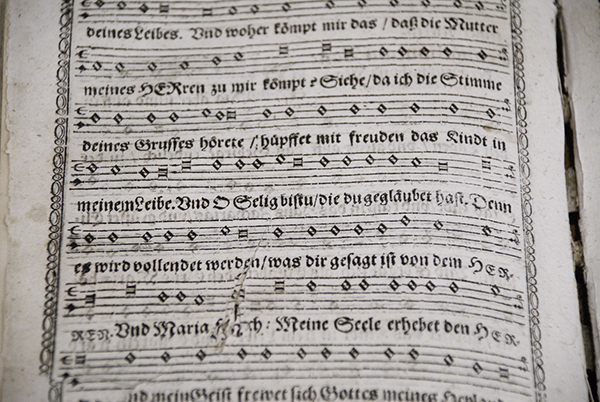 deines Leibes. Und woher kömpt mir das / daß die Mutter
meines HERren zu mir kömpt? Siehe / da ich die Stimme
deines Grusses hörete / hüpffet mit freuden das Kindt in
meinem Leibe. Und O Selig bistu / die du gegläubet hast. Denn
es wird vollendet werden / was dir gesagt ist von dem HER-
REN. Und Maria : Meine Seele erhebet den HER-
nd mein Geist frewet sich Gottes meines